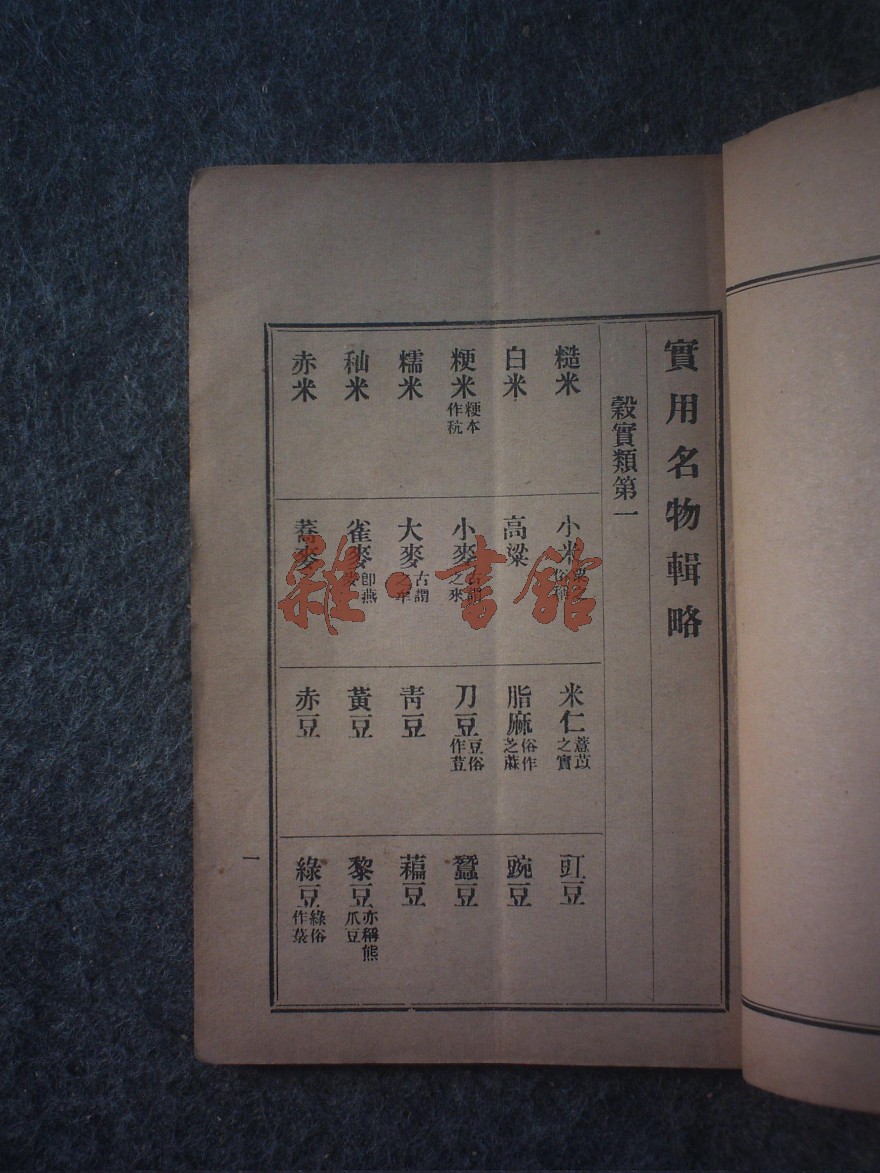 實用名物輯略
穀實類第一
糙米
白米
粳米 粳本作秔
糯米
秈米
赤米
小米
高粱
小麥 古謂之來
大麥 古謂之牟
雀麥 卽燕麥
蕎麥
米仁 薏苡之實
脂麻 俗作芝蔴
刀豆 豆俗作荳
靑豆
黃豆
赤豆
豇豆
豌豆
蠶豆
藊豆
黎豆 亦稱熊爪豆
綠豆 綠俗作菉
一
雜·書館